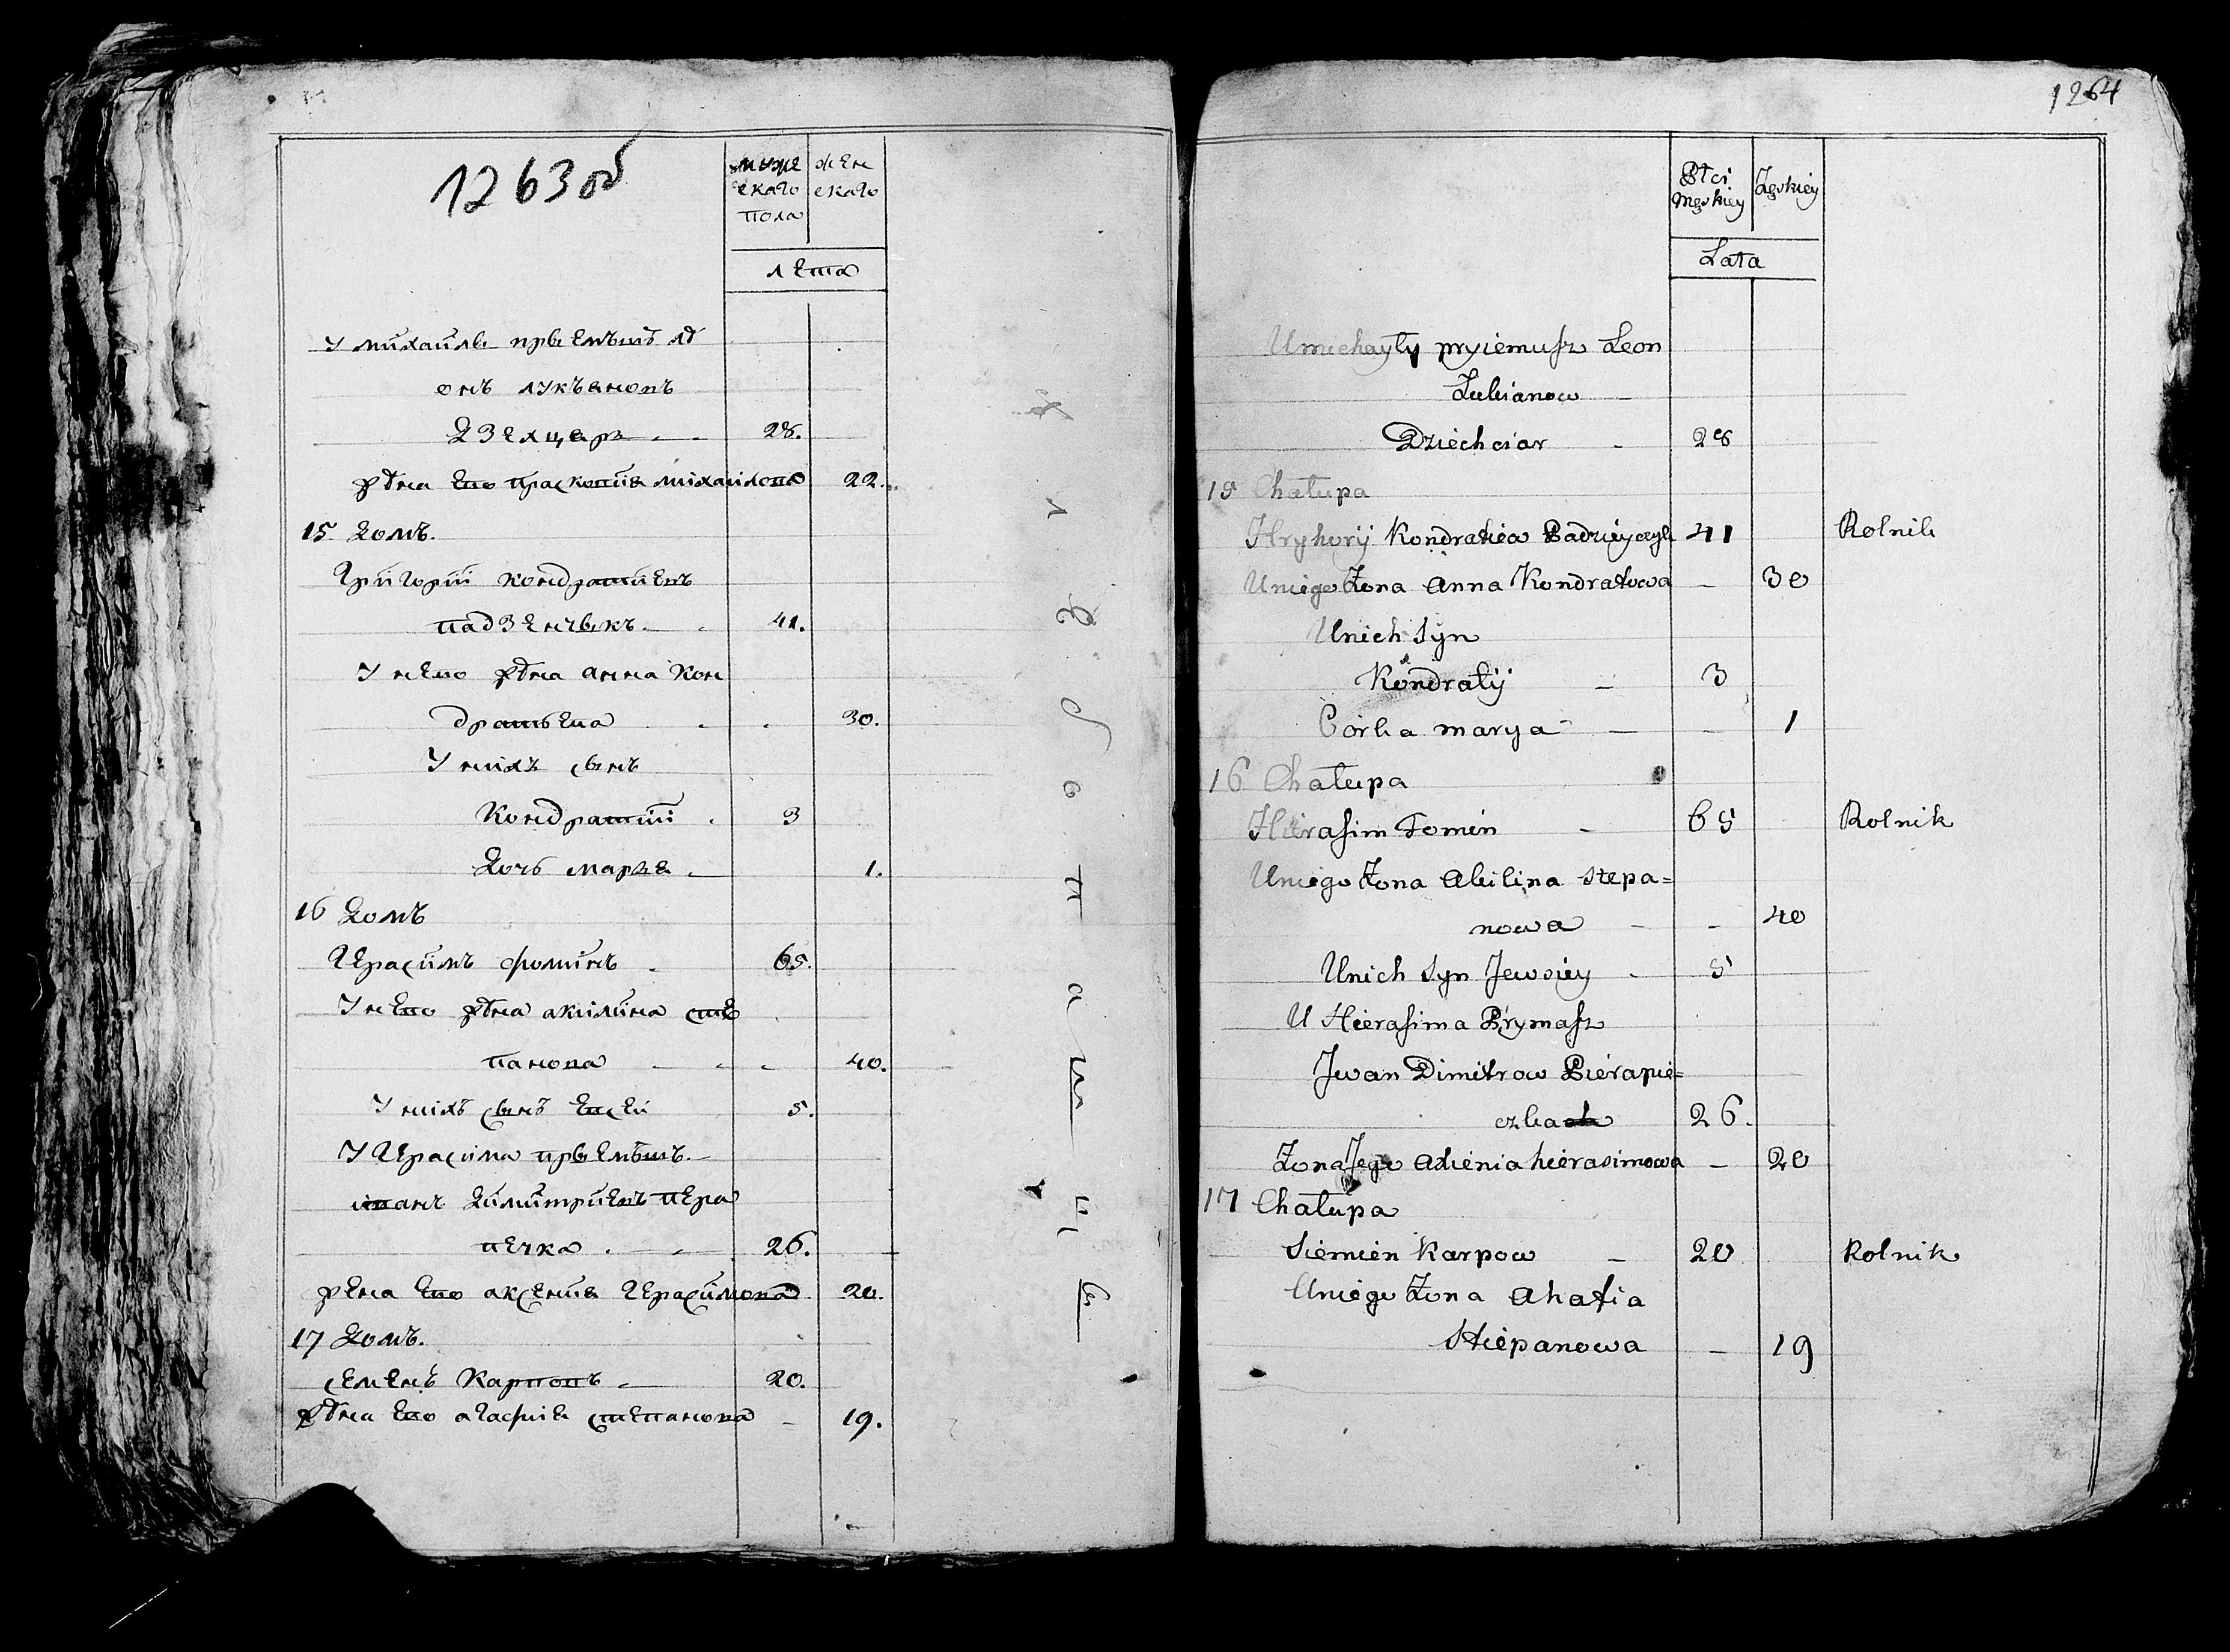 1263об
муже
скаго
пола
жен
скаго
лета
У михайлы прыемыш ле
онъ лукъяновъ
Дзехцяръ 28.
жена его прасковия михаилова 22.
15 Домъ.
Григорий кондратиевъ
падзенчыкъ 41.
У него жена анна Кон
дратьева 30.
У нихъ сынъ
Кондратий 3
Дочь марья 1.
16 Домъ
Герасимъ фоминъ 65.
У него жена акилина сте
панова 40.
У нихъ сынъ Евсей 5.
У Герасима прыемышъ
иванъ Димитриевъ пера
печка 26.
жена его аксения Герасимова 20.
17 Домъ.
семенъ Карповъ 20.
жена его агафия степанова 19.
1264
Płci
Męskiey
Żęskiey
Lata
U michayły pryiemusz Leon
Lukianow
Dziechciar 28
15 Chałupa
Hryhorÿ Kondratiew Padzieyczyk 41 Rolnik
Uniego Żona Anna Kondratowa 30
Unich Syn
Kondratÿ 3
Córka marya 1
16 Chałupa
Hierasim Fomin 65 Rolnik
Uniego Żona Akilina Stepa=
nowa 40
Unich Syn Jewsiey 5
U Hierasima Prymasz
Jwan Dimitrow Pierapie=
czka 26.
Żona Jego Axienia hierasimowa 20
17 Chałupa
Siemien Karpow 20 Rolnik
Uniego Żona Ahafia
Stiepanowa 19